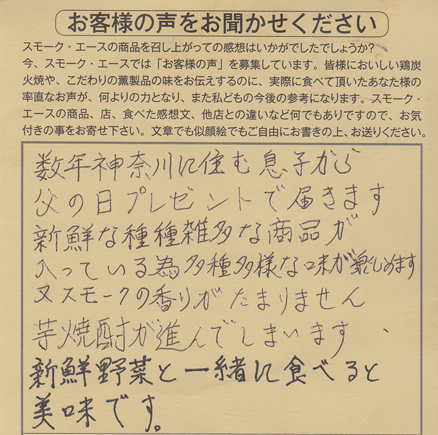 お客様の声をお聞かせください
スモーク・エースの商品を召し上がっての感想はいかがでしたでしょうか?
今、スモーク・エースでは「お客様の声」を募集しています。皆様においしい鶏炭
火焼や、こだわりの薫製品の味をお伝えするのに、実際に食べて頂いたあなた様の
率直なお声が、何よりの力となり、また私どもの今後の参考になります。スモーク・
エースの商品、店、食べた感想文、他店との違いなど何でもありですので、お気
付きの事をお寄せ下さい。文章でも似顔絵でもご自由にお書きの上、お送りください。
数年神奈川に住む息子から
父の日プレゼントで届きます
新鮮な種種雑多な商品が
入っている為多種多様な味が楽しめます
又スモークの香りがたまりません
芋焼酎が進んでしまいます
新鮮野菜と一緒に食べると
美味です。